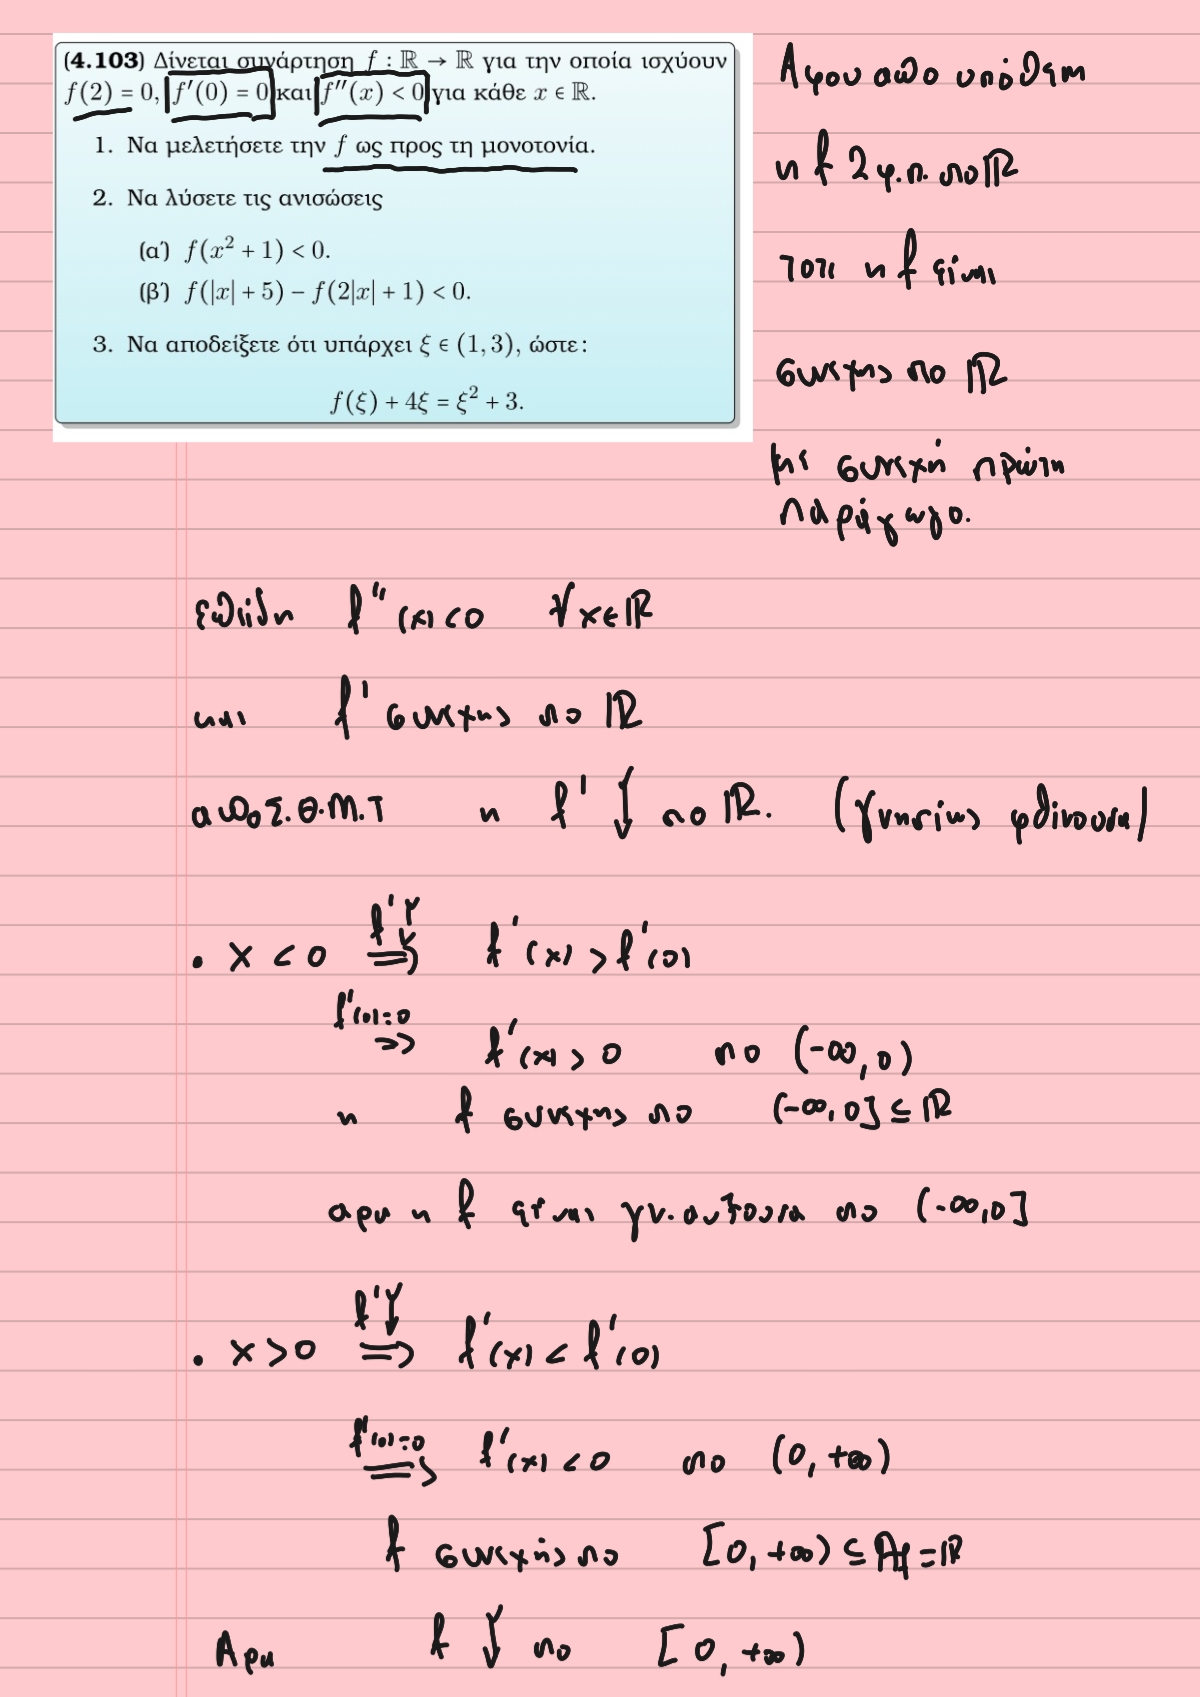 (4.103) Δίνεται συνάρτηση f : ℝ → ℝ για την οποία ισχύουν
f(2) = 0, f′(0) = 0 και f″(x) < 0 για κάθε x ∈ ℝ.
1. Να μελετήσετε την f ως προς τη μονοτονία.
2. Να λύσετε τις ανισώσεις
(α΄) f(x² + 1) < 0.
(β΄) f(|x| + 5) − f(2|x| + 1) < 0.
3. Να αποδείξετε ότι υπάρχει ξ ∈ (1, 3), ώστε:
f(ξ) + 4ξ = ξ² + 3.
Αφου απο υπόθεση
η f 2 φ.π. στο ℝ
τοτε η f είναι
συνεχης στο ℝ
με συνεχή πρώτη
παράγωγο.
επειδη f″(x) < 0 ∀x∈ℝ
και f′ συνεχης στο ℝ
απο Σ.Θ.Μ.Τ η f′ ↓ στο ℝ. (γνησίως φθίνουσα)
• x < 0 ⇒ f′(x) > f′(0)
f′↓
f′(0)=0
⇒ f′(x) > 0 στο (-∞, 0)
η f συνεχης στο (-∞, 0] ⊆ ℝ
αρα η f είναι γν. αυξουσα στο (-∞, 0]
f′↓
• x > 0 ⇒ f′(x) < f′(0)
f′(0)=0
⇒ f′(x) < 0 στο (0, +∞)
f συνεχής στο [0, +∞) ⊆ Af = ℝ
Αρα f ↓ στο [0, +∞)